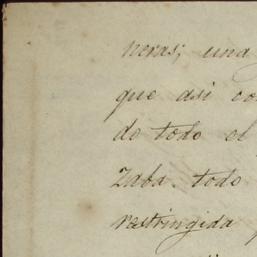 neras; una
que asi co
do todo el
Zaba. todo
restringida